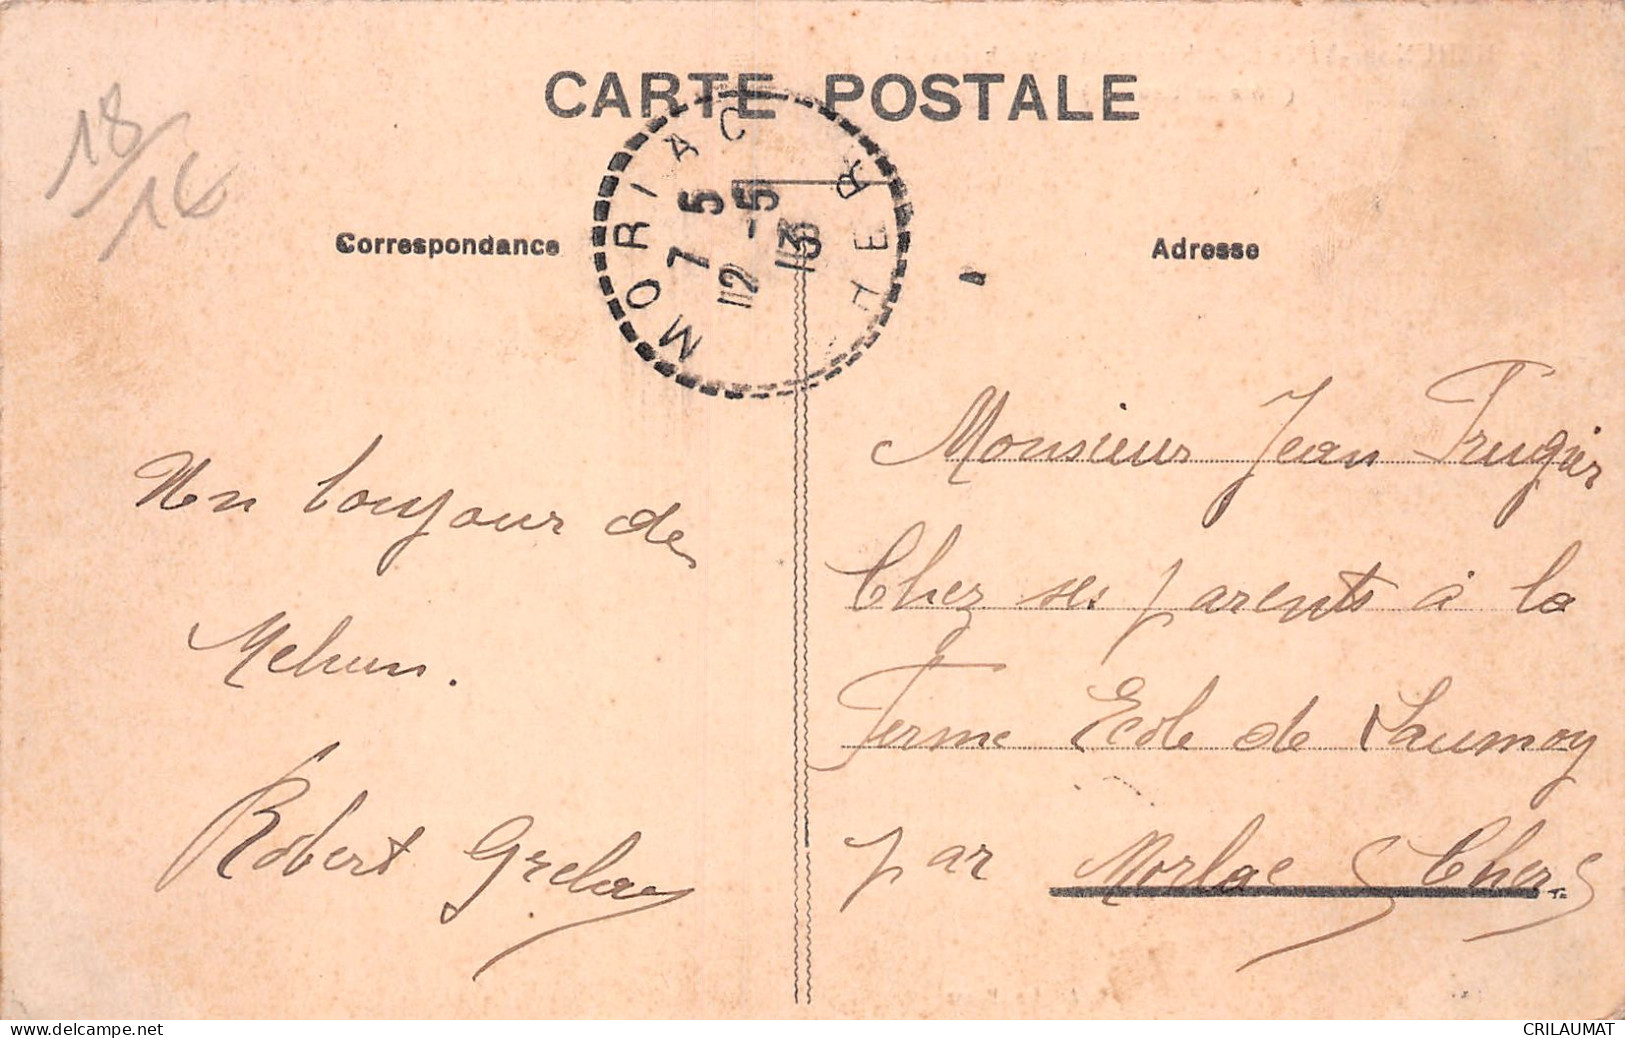 CARTE POSTALE
18/16
MORIAC CHER
7 5
12 -5
13
Correspondance
Adresse
Un toujour de
Mehun.
Robert Grelay
Monsieur Jean Frugier
Chez ses parents à la
Ferme Ecole de Laumoy
par Morlac (Cher)
CRILAUMAT